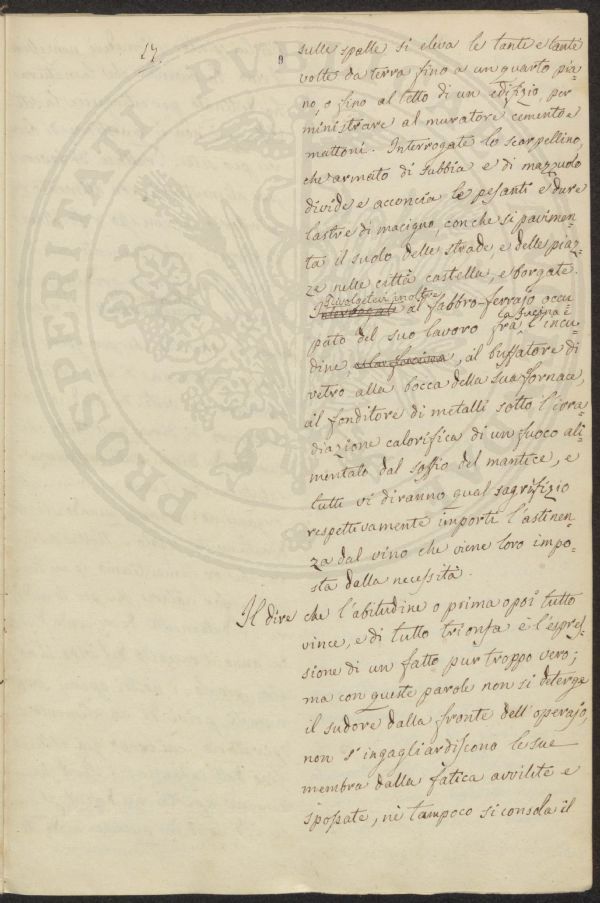 17.
sulle spalle si eleva le tante e tante
volte da terra fino a un quarto pia-
no, o fino al tetto di un edifizio, per
ministrare al muratore cemento e
mattoni. Interrogate lo scarpellino,
che armato di subbia e di mazzuolo
divide e acconcia le pesanti e dure
lastre di macigno, con che si pavimen-
ta il suolo delle strade, e delle piaz-
ze nelle città castella, e borgate.
Rivolgetevi inoltre
Interrogate al fabbro-ferrajo occu
la fucina e
pato del suo lavoro fra l'incu
dine, e la fucina, al buffatore di
vetro alla bocca della sua fornace,
al fonditore di metalli sotto l'irra
diazione calorifica di un fuoco ali-
mentato dal soffio del mantice, e
tutti vi diranno qual sagrifizio
respettivamente importi l'astinen-
za dal vino che viene loro impo-
sta dalla necessità.
Il dire che l'abitudine o prima o poi tutto
vince, e di tutto trionfa è l'espres-
sione di un fatto pur troppo vero;
ma con queste parole non si deterge
il sudore dalla fronte dell'operajo,
non s'ingagliardiscono le sue
membra dalla fatica avvilite e
spossate, nè tampoco si consola il
PROSPERITATI PVB